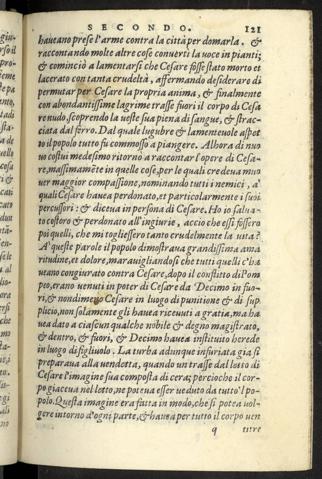 SECONDO. 121
haveano prese l'arme contra la città per domarla, &
raccontando molte altre cose converti la voce in pianti;
& cominciò a lamentarsi che Cesare fosse stato morto et
lacerato con tanta crudeltà, affermando desiderare di
permutar per Cesare la propria anima, & finalmente
con abondantissime lagrime trasse fuori il corpo di Cesa
re nudo, scoprendo la veste sua piena di sangue, & strac-
ciata dal ferro. Dal quale lugubre & lamentevole aspet
to il popolo tutto fu commosso a piangere. Alhora di nuo
vo costui medesimo ritorno a raccontar l'opere di Cesa-
re, massimamēte in quelle cose, per le quali credeva muo
ver maggior compassione, nominando tutti i nemici, a'
quali Cesare havea perdonato, et particolarmente i suoi
percussori: & diceva in persona di Cesare. Ho io salva-
to costoro & perdonato all'ingiurie, acciò che essi fossero
poi quelli, che mi togliessero tanto crudelmente la vita?
A' queste parole il popolo dimostrava grandissima ama
ritudine, et dolore, maravigliandosi che tutti quelli c'ha
veano congiurato contra Cesare, dopo il conflitto di Pom
peo, erano venuti in poter di Cesare da Decimo in fuo-
ri, & nondimeno Cesare in luogo di punitione & di sup
plicio, non solamente gli havea ricevuti a gratia, ma ha
vea dato a ciascun qualche nobile & degno magistrato,
& dentro, & fuori, & Decimo havea instituito herede
in luogo di figliuolo. La turba adunque infuriata già si
preparava alla vendetta, quando un trasse dal letto di
Cesare l'imagine sua composta di cera; percioche il cor-
po giaceva nel letto, ne poteva esser veduto da tutto'l po-
polo. Questa imagine era fatta in modo, che si potea vol-
gere intorno d'ogni parte, & havea per tutto il corpo ven
q titre